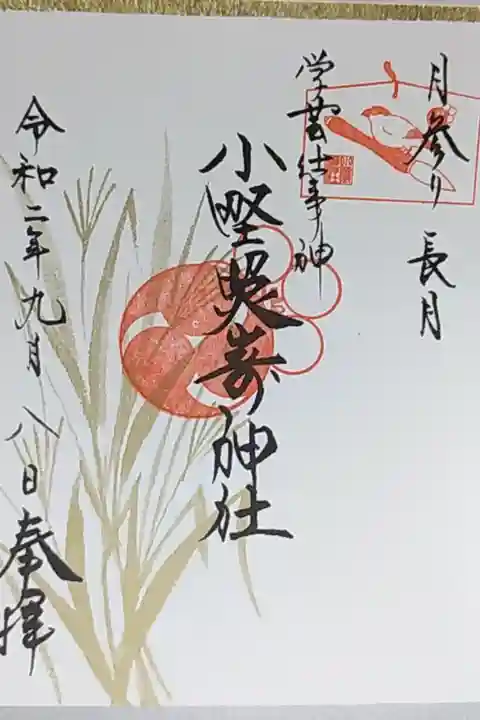 月参り 長月
学芸仕事神
小野照崎神社
令和二年九月八日奉拝